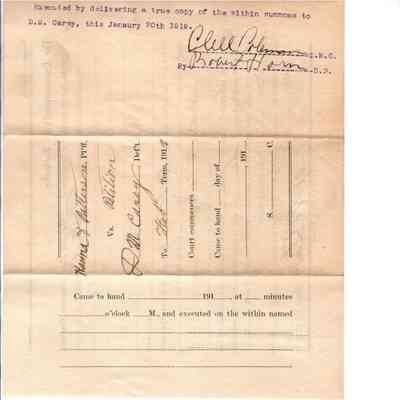 Executed by delivering a true copy of the within summons to
D.M. Carey, this January 20th 1919.
S.B.C.
By Robert Horn D.S.
Plff.
Vs. Petition
D M Carey Def't
To Feb Term, 191
Court commences
Came to hand day of
191
S. C.
Came to hand 191 , at minutes
o'clock M., and executed on the within named